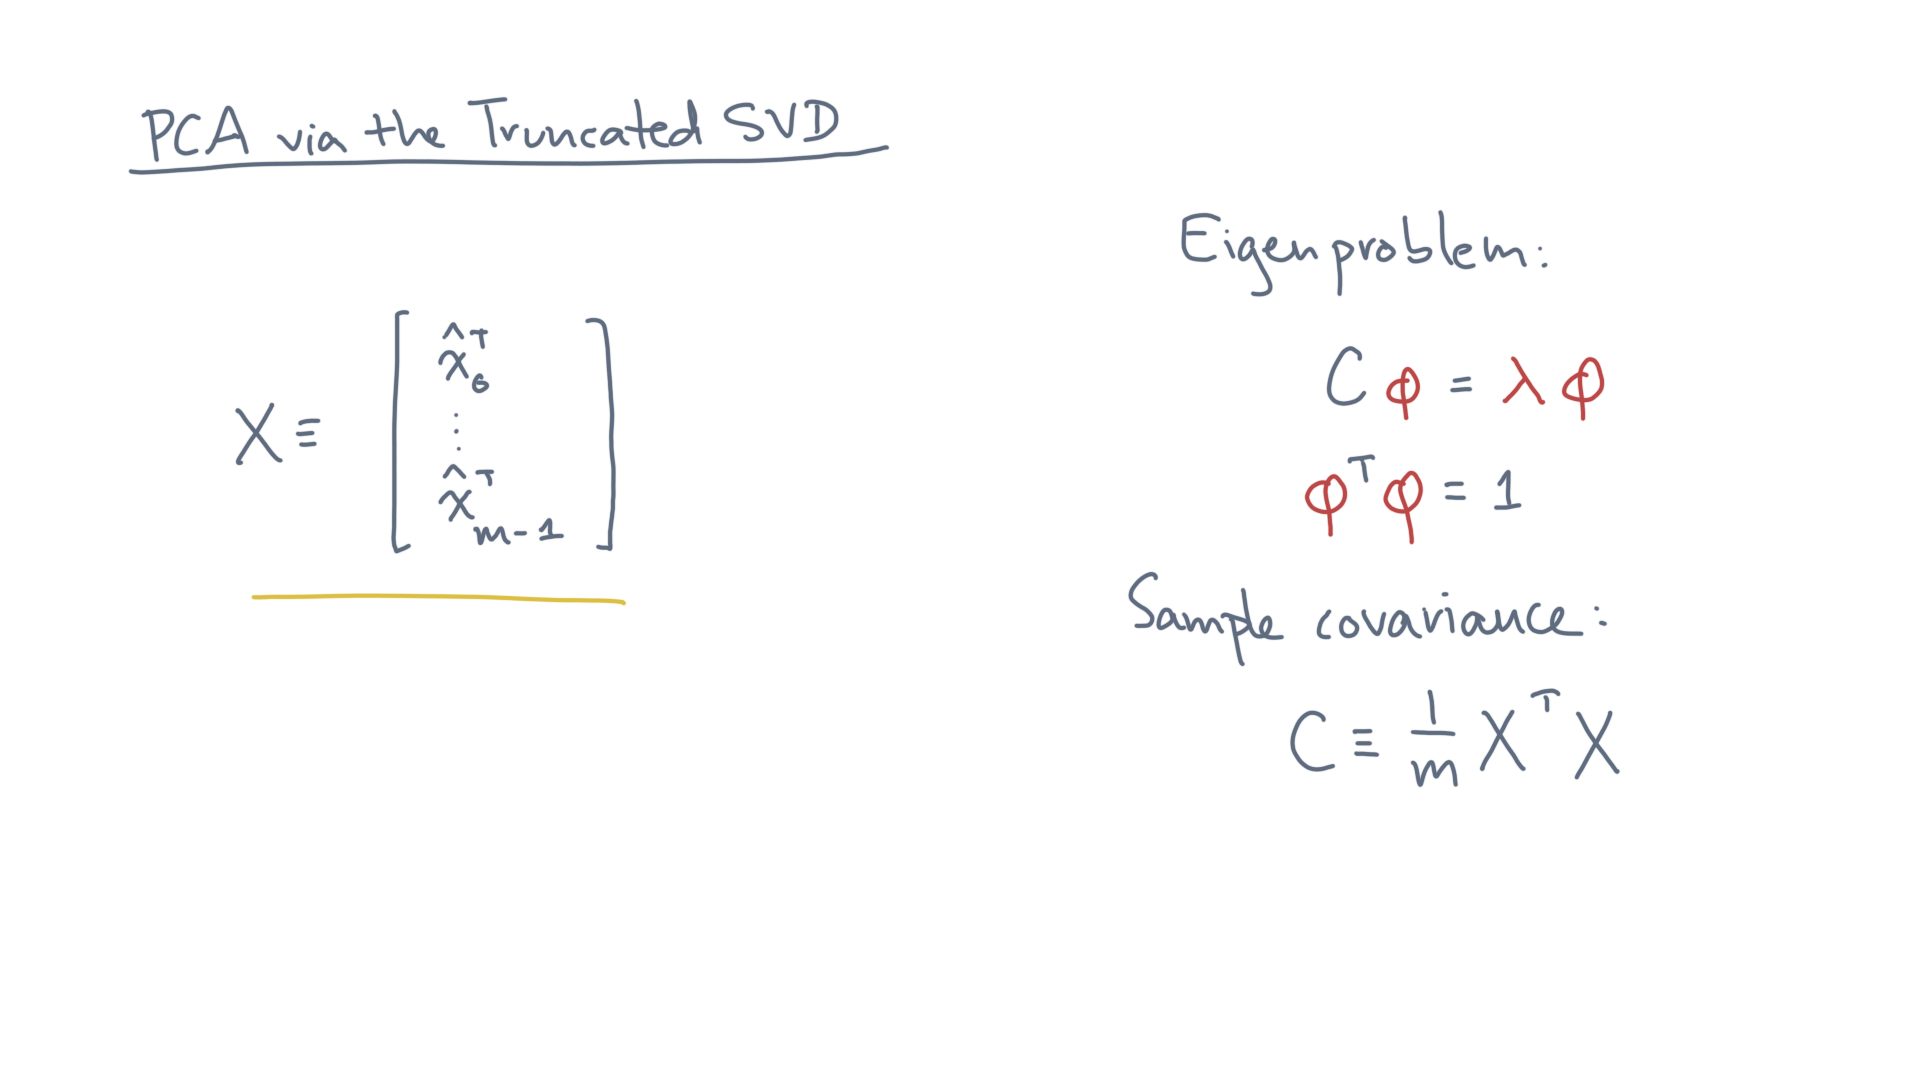 PCA via the Truncated SVD
X ≡ [ x̂₀ᵀ ⋮ x̂ᵀₘ₋₁ ]
Eigenproblem:
C φ = λ φ
φᵀφ = 1
Sample covariance:
C ≡ 1/m Xᵀ X